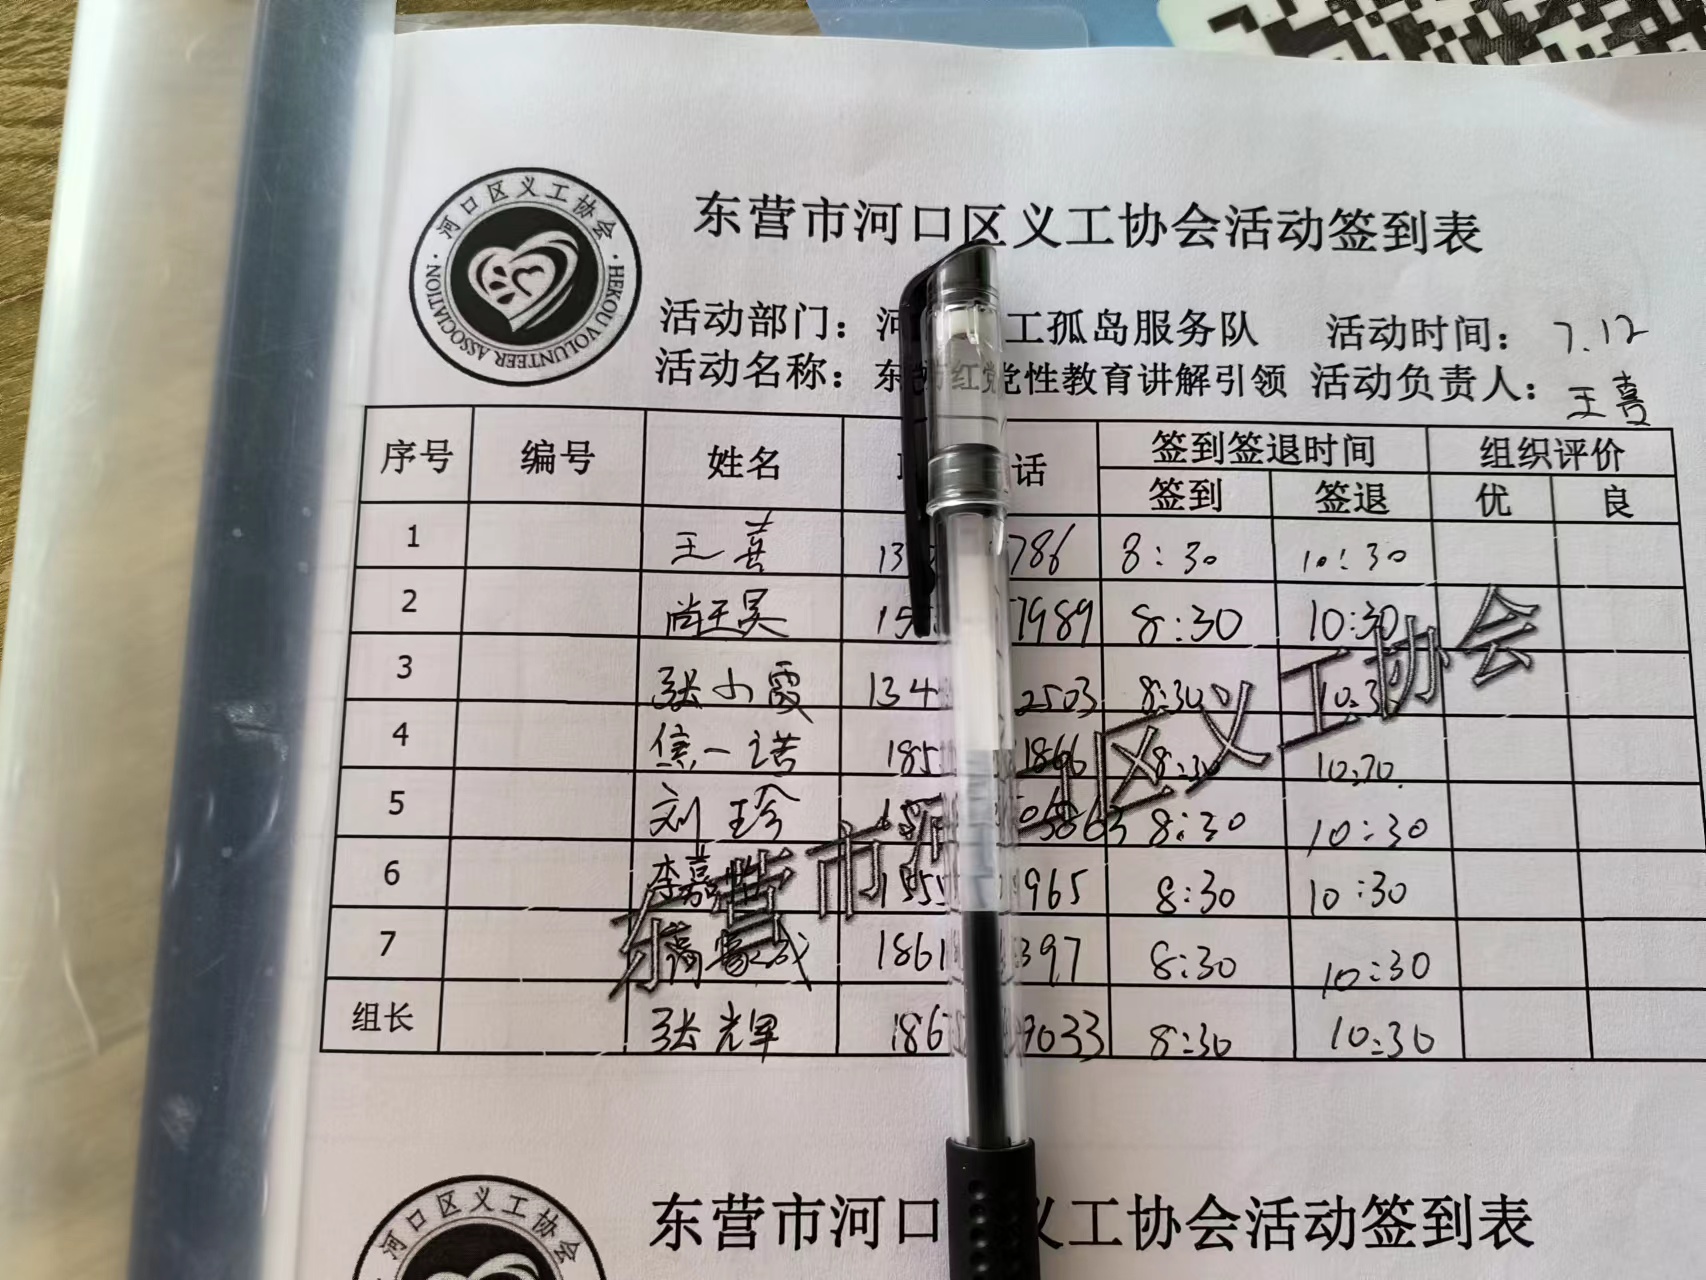 河口区义工协会
HEKOU VOLUNTEER ASSOCIATION
东营市河口区义工协会活动签到表
活动部门：河 工孤岛服务队 活动时间：7.12
活动名称：东 方红党性教育讲解引领 活动负责人：王喜
序号 编号 姓名 话 签到签退时间 组织评价
签到 签退 优 良
1 王喜 13 786 8:30 10:30
2 尚王昊 15 7989 8:30 10:30
3 张小霞 134 2503 8:30 10:3
4 焦一诺 185 1866 8:30 10:30
5 刘珍 5863 8:30 10:30
6 李嘉 155 965 8:30 10:30
7 高豪成 1861 397 8:30 10:30
组长 张光军 186 9033 8:30 10:30
东营市河口区义工协会
河口区义工协会
东营市河口 义工协会活动签到表